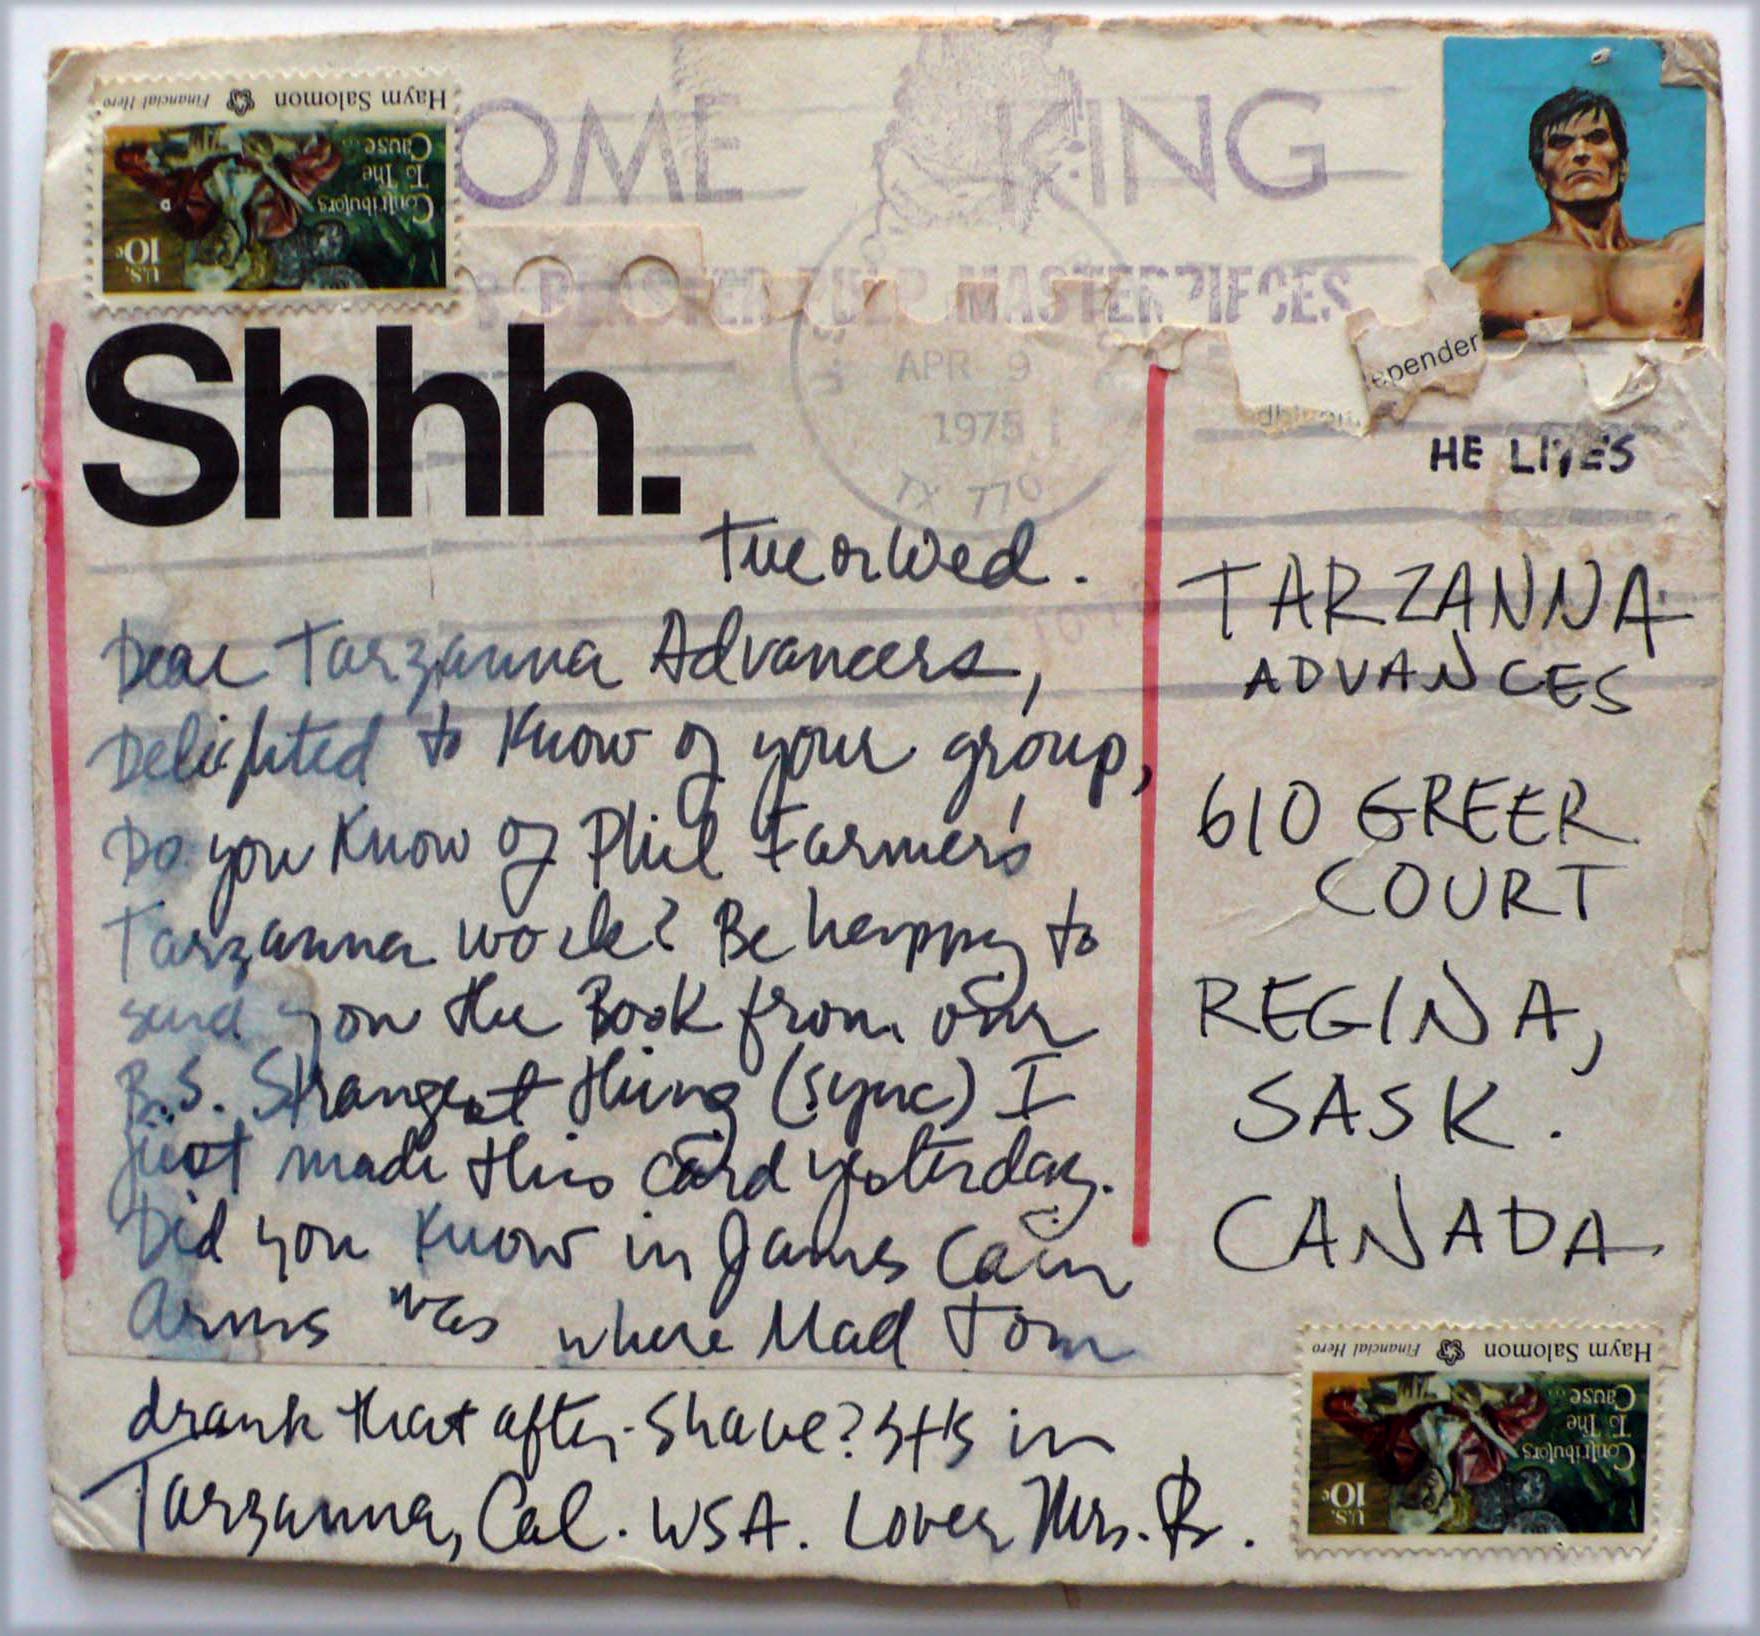 Haym Salomon Financial Hero
Contributors
To The
Cause
U.S.
10c
OME KING
PLASTER PULP MASTERPIECES
APR 9
1975
TX 770
epender
HE LIVES
Shhh.
Tue or Wed.
Dear Tarzanna Advancers,
Delighted to Know of your group,
Do you Know of Phil Farmer's
Tarzanna work? Be happy to
send you the Book from our
B.S. Strangest thing (sync) I
just made this card yesterday.
Did you Know in James Cain
Arms was where Mad Tom
drank that after-Shave? It's in
Tarzanna, Cal. USA. Love, Mrs. R.
TARZANNA
ADVANCES
610 GREER
COURT
REGINA,
SASK.
CANADA
Haym Salomon Financial Hero
Contributors
To The
Cause
U.S.
10c